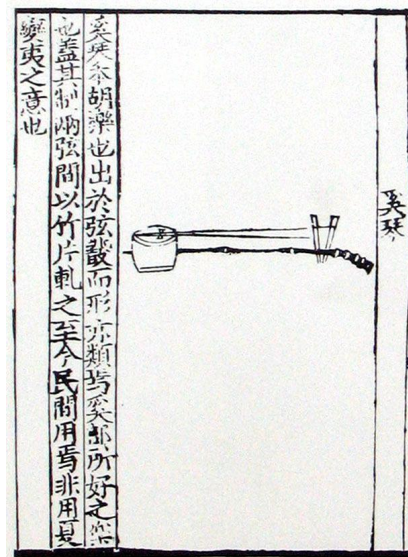 奚琴
奚琴本胡樂也出於弦鼗而形亦類焉奚部所好之樂
也蓋其制兩弦間以竹片軋之至今民間用焉非用夏
變夷之意也